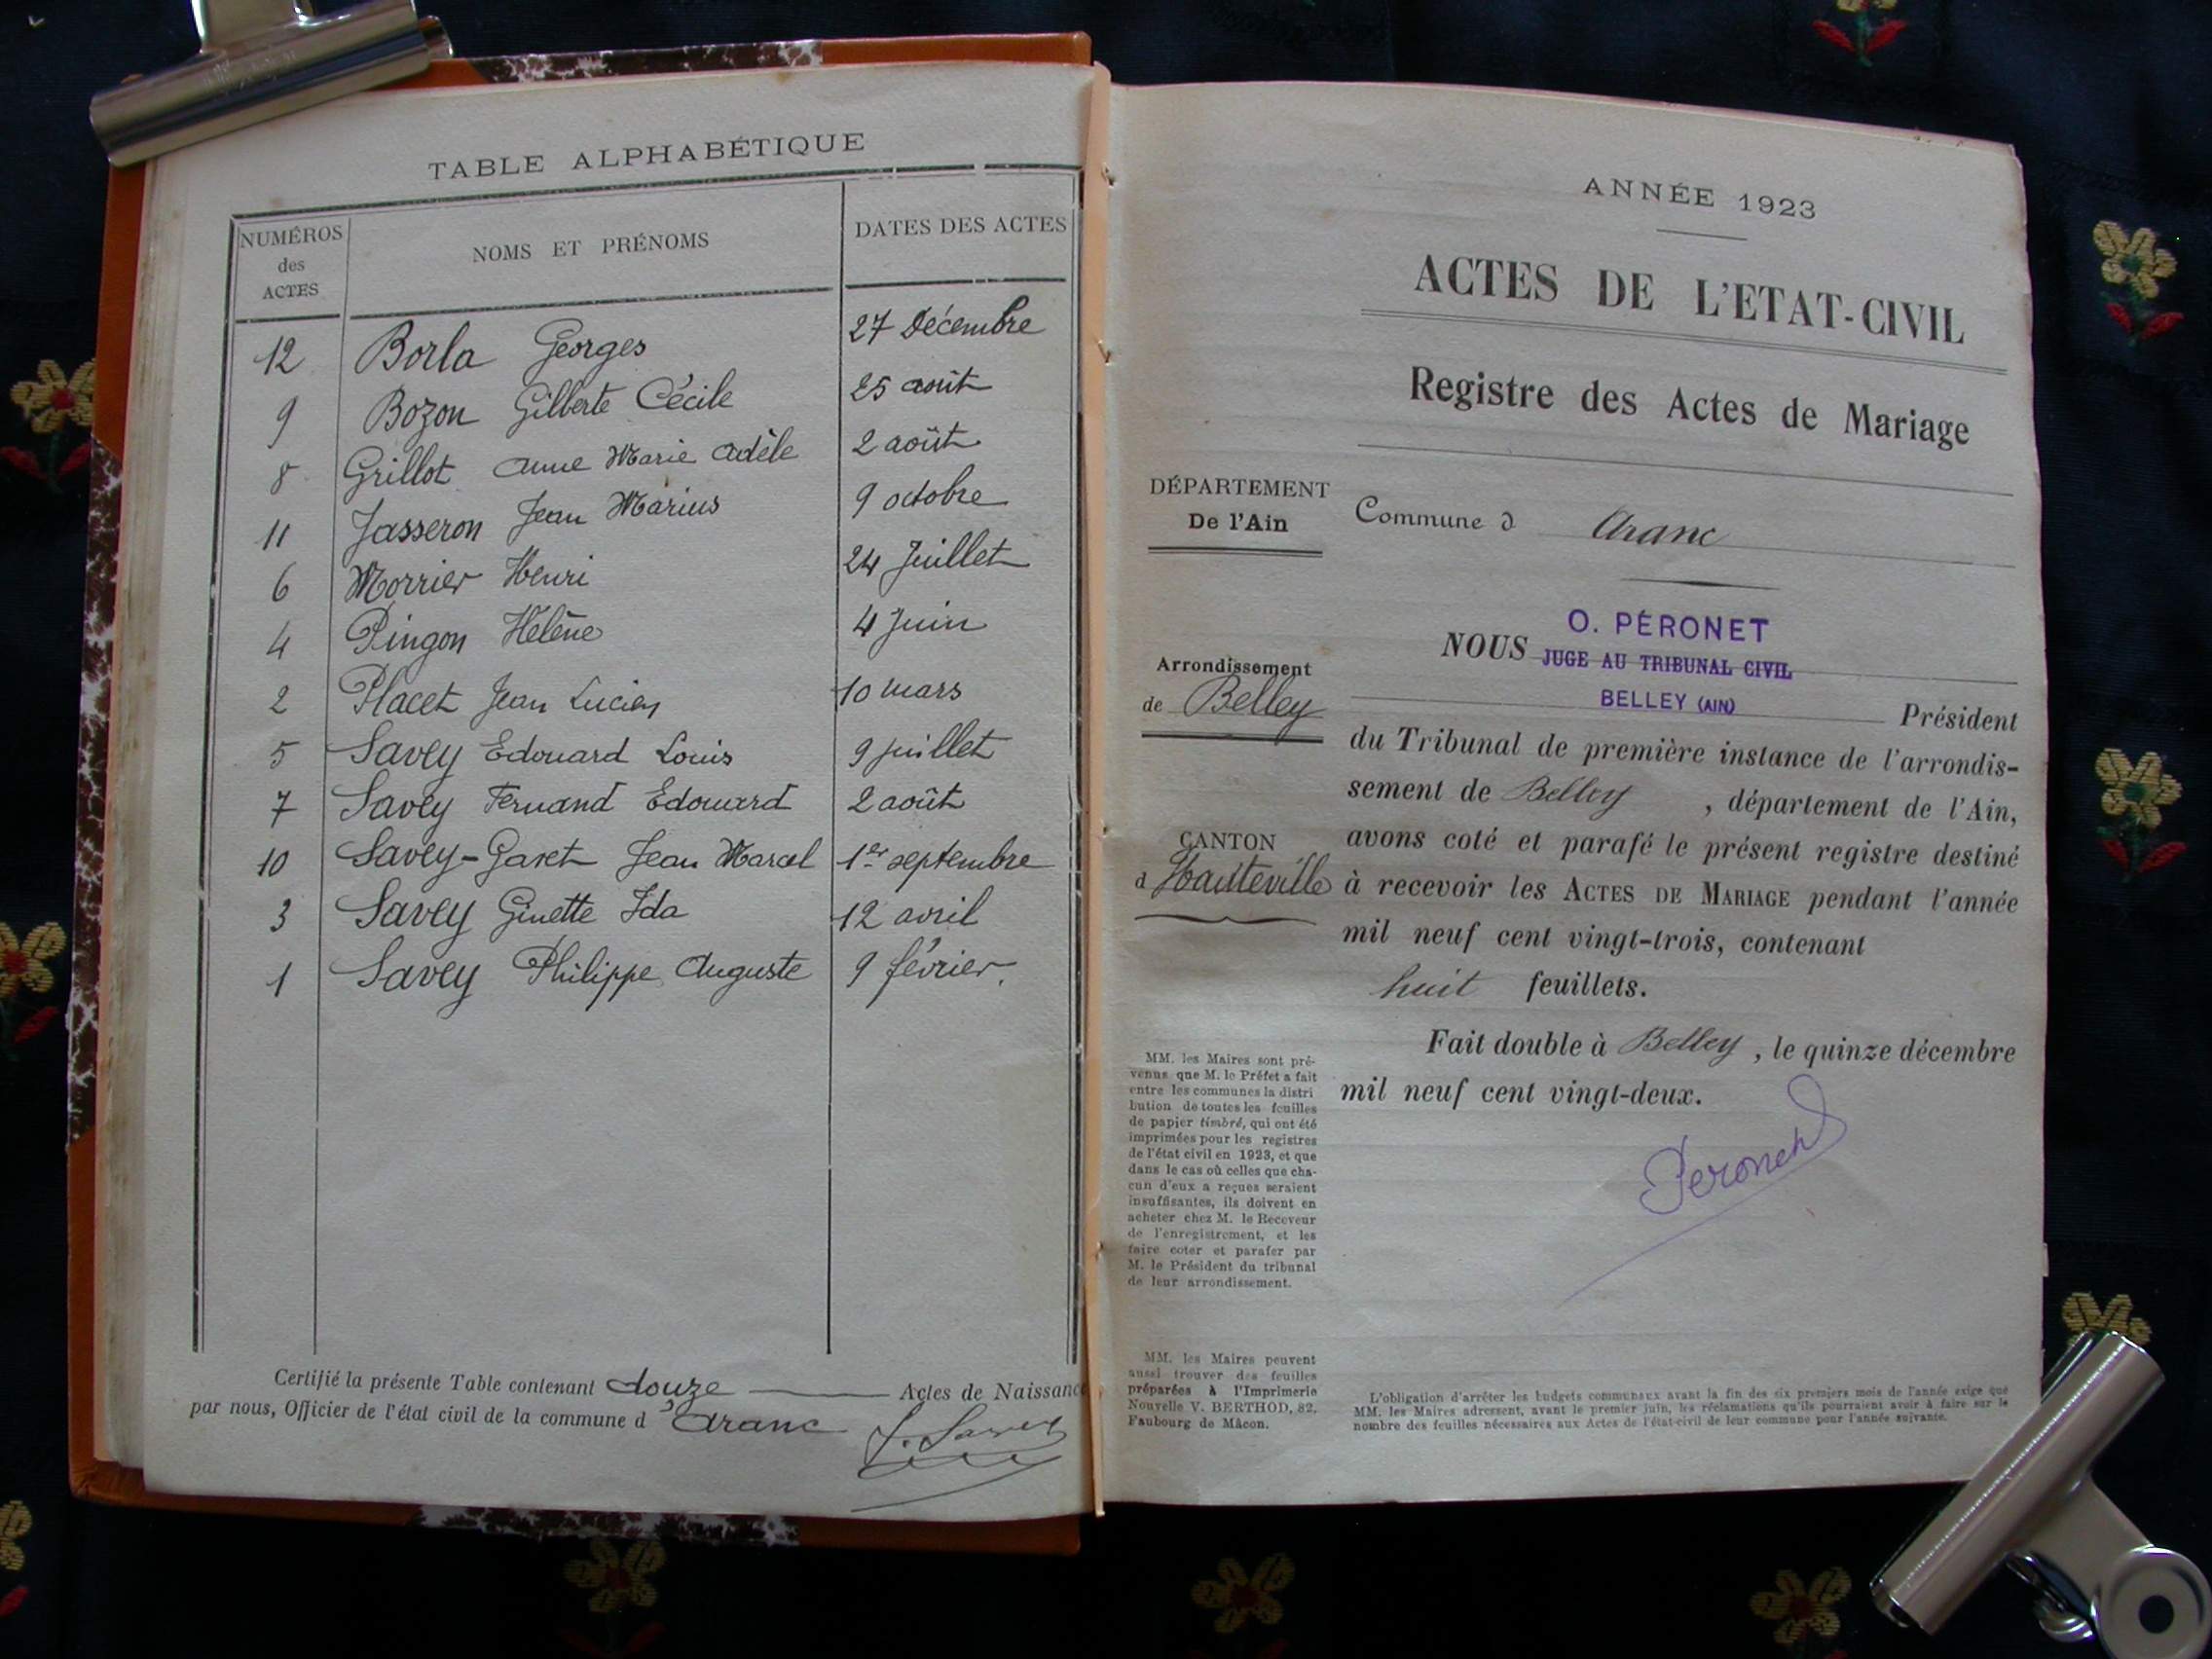 TABLE ALPHABÉTIQUE
NUMÉROS des ACTES NOMS ET PRÉNOMS DATES DES ACTES
12 Borla Georges 27 Décembre
9 Bozon Gilberte Cécile 25 août
8 Grillot Anne Marie Adèle 2 août
11 Jasseron Jean Marius 9 octobre
6 Morrier Henri 24 Juillet
4 Pingon Hélène 4 Juin
2 Placet Jean Lucien 10 mars
5 Savey Edouard Louis 9 juillet
7 Savey Fernand Edouard 2 août
10 Savey-Gavet Jean Marcel 1er septembre
3 Savey Ginette Ida 12 avril
1 Savey Philippe Auguste 9 février.
Certifié la présente Table contenant douze Actes de Naissance
par nous, Officier de l'état civil de la commune d'Aranc
ANNÉE 1923
ACTES DE L'ETAT-CIVIL
Registre des Actes de Mariage
DÉPARTEMENT
De l'Ain
Commune d Aranc
Arrondissement
de Belley
CANTON
d Hauteville
O. PÉRONET
NOUS JUGE AU TRIBUNAL CIVIL
BELLEY (AIN)
Président
du Tribunal de première instance de l'arrondis-
sement de Belley, département de l'Ain,
avons coté et parafé le présent registre destiné
à recevoir les ACTES DE MARIAGE pendant l'année
mil neuf cent vingt-trois, contenant
huit feuillets.
Fait double à Belley, le quinze décembre
mil neuf cent vingt-deux.
Peronet
MM. les Maires sont pré-
venus que M. le Préfet a fait
entre les communes la distri
bution de toutes les feuilles
de papier timbré, qui ont été
imprimées pour les registres
de l'état civil en 1923, et que
dans le cas où celles que cha-
cun d'eux a reçues seraient
insuffisantes, ils doivent en
acheter chez M. le Receveur
de l'enregistrement, et les
faire coter et parafer par
M. le Président du tribunal
de leur arrondissement.
MM. les Maires peuvent
aussi trouver des feuilles
préparées à l'Imprimerie
Nouvelle V. BERTHOD, 82,
Faubourg de Mâcon.
L'obligation d'arrêter les budgets communaux avant la fin des six premiers mois de l'année exige que
MM. les Maires adressent, avant le premier juin, les réclamations qu'ils pourraient avoir à faire sur le
nombre des feuilles nécessaires aux Actes de l'état-civil de leur commune pour l'année suivante.